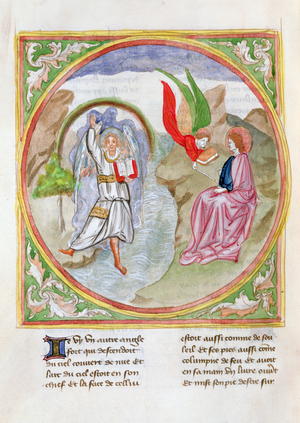 I Vy Vn autre angle
fort qui descendoit
du ciel couuert de nue et
larc du ciel estoit en son
chef et la face de cellui
estoit aussi comme de sou
leil et ses pies aussi come
columpne de feu et auoit
en sa main Vn liure
et mist son pie destre sur